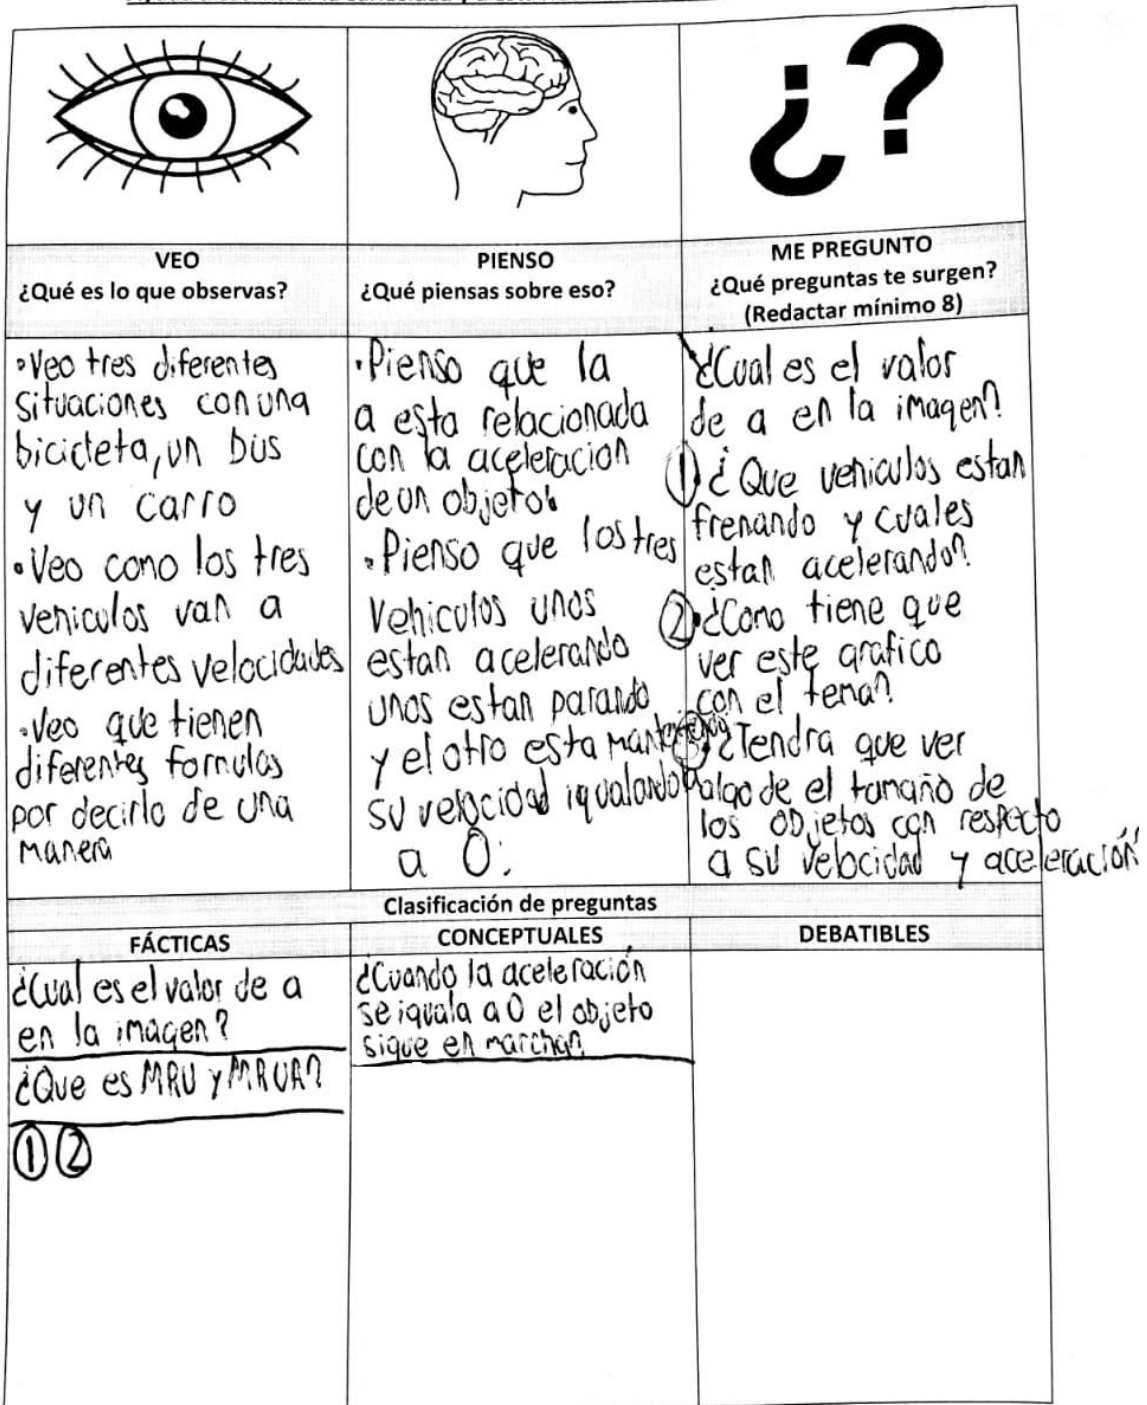 ¿?
VEO
¿Qué es lo que observas?
PIENSO
¿Qué piensas sobre eso?
ME PREGUNTO
¿Qué preguntas te surgen?
(Redactar mínimo 8)
•Veo tres diferentes
situaciones con una
bicicleta, un bus
y un carro
•Veo como los tres
vehiculos van a
diferentes velocidades
•Veo que tienen
diferentes formulas
por decirlo de una
manera
•Pienso que la
a esta relacionada
con la aceleracion
de un objeto
•Pienso que los tres
vehiculos unos
estan acelerando
unos estan parando
y el otro esta manteniendo
su velocidad igualando
a 0.
¿Cual es el valor
de a en la imagen?
① ¿Que vehiculos estan
frenando y cuales
estan acelerando?
② ¿Como tiene que
ver este grafico
con el tema?
¿Tendra que ver
algo de el tamaño de
los objetos con respecto
a su velocidad y aceleración
Clasificación de preguntas
FÁCTICAS
CONCEPTUALES
DEBATIBLES
¿Cual es el valor de a
en la imagen?
¿Que es MRU y MRUA?
① ②
¿Cuando la aceleración
se iguala a 0 el objeto
sigue en marcha?